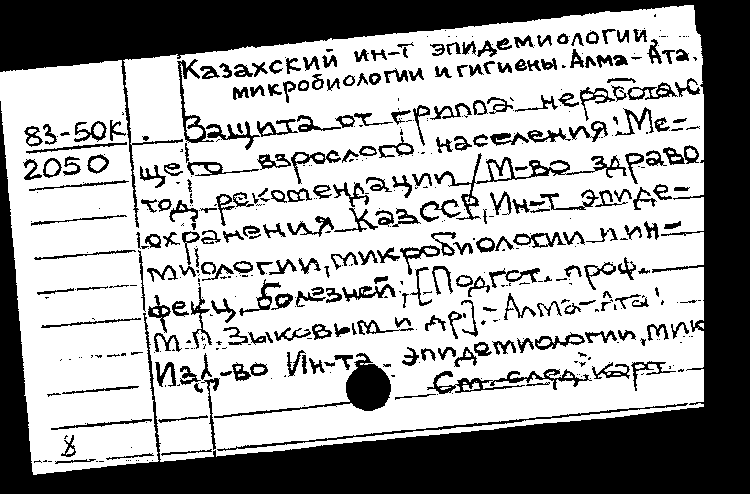 Казахский ин-т эпидемиологии,
микробиологии и гигиены. Алма-Ата.
83-50К
2050
Защита от гриппа неработаю-
щего взрослого населения: Ме-
тод. рекомендации / М-во здраво
охранения КазССР, Ин-т эпиде-
миологии, микробиологии и ин-
фекц. болезней; [Подгот. проф.
М.П. Зыковым и др]. - Алма-Ата:
Изд-во Ин-та эпидемиологии, мик
См. след. карт
8